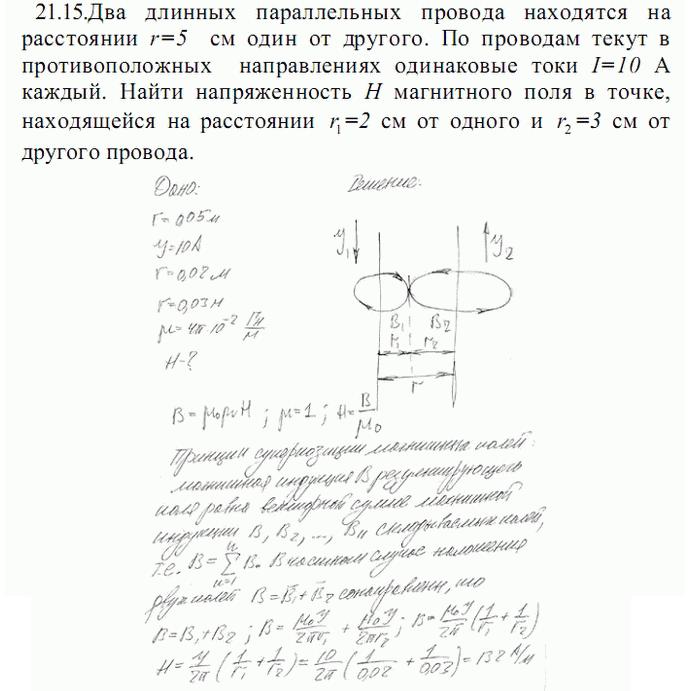 21.15.Два длинных параллельных провода находятся на
расстоянии r=5 см один от другого. По проводам текут в
противоположных направлениях одинаковые токи I=10 А
каждый. Найти напряженность H магнитного поля в точке,
находящейся на расстоянии r₁=2 см от одного и r₂=3 см от
другого провода.
Дано:
Решение:
r=0,05м
У=10А
r=0,02м
r=0,03м
μ=4π·10⁻² Гн/м
H-?
У₁
У₂
B₁ B₂
r₁ r₂
r
B=μ₀μH ; μ=1 ; H=B/μ₀
Принцип суперпозиции магнитных полей:
магнитная индукция B результирующего
поля равна векторной сумме магнитной
индукции B₁ B₂, ..., Bₙ складываемых полей,
т.е. B=∑ⁿₙ₌₁ Bₙ В частном случае наложения
двух полей B=B̄₁+B̄₂ сонаправлены, то
B=B₁+B₂ ; B=μ₀У/2πr₁ + μ₀У/2πr₂ ; B=μ₀У/2π (1/r₁ + 1/r₂)
H=У/2π (1/r₁ + 1/r₂) = 10/2π (1/0,02 + 1/0,03) = 132 А/м